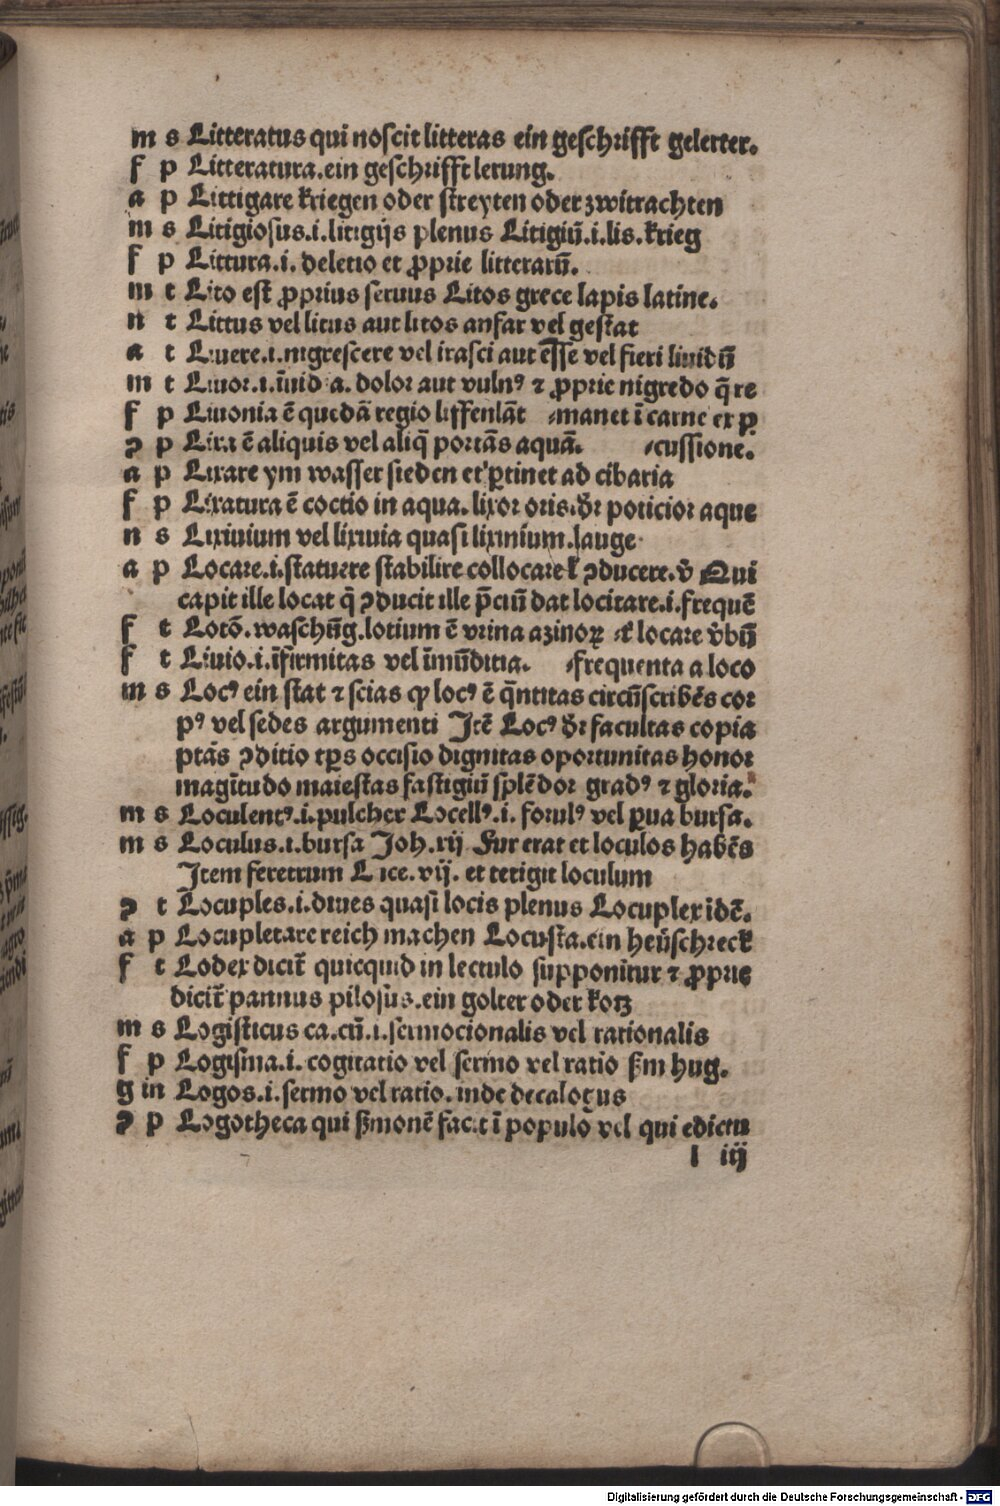 m s Litteratus qui noscit litteras ein geschrifft gelerter.
f p Litteratura.ein geschrifft lerung.
a p Littigare kriegen oder streyten oder zwitrachten
m s Litigiosus.i.litigijs plenus Litigiū.i.lis.krieg
f p Littura.i. deletio et ꝓprie litterarū.
m t Lito est ꝓprius seruus Litos grece lapis latine.
n t Littus vel litus aut litos anfar vel gestat
a t Liuere.i.nigrescere vel irasci aut esse vel fieri liuidū
m t Liuor.i.īuidia. dolor aut vulnꝰ ⁊ ꝓprie nigredo q̄ re
f p Liuonia ē quedā regio liffenlāt manet ī carne ex ꝑ
ꝯ p Lixa ē aliquis vel aliq̄ portās aquā. cussione.
a p Lixare ym wasser sieden et ꝑtinet ad cibaria
f p Lixatura ē coctio in aqua. lixor oris.dr̄ poticior aque
n s Lixiuium vel lixiuia quasi lixinium.lauge
a p Locare.i.statuere stabilire collocare ꝯducere.v̄ Qui
capit ille locat q̄ ꝯducit ille p̄ciū dat locitare.i.frequē
f t Lotō.waschūg.lotium ē vrina azinoꝝ locare v̄bū
f t Liuio.i.īfirmitas vel īmūditia. frequenta a loco
m s Locꝰ ein stat ⁊ scias ꝙ locꝰ ē q̄ntitas circūscribēs cor
pꝰ vel sedes argumenti Itē Locꝰ dr̄ facultas copia
ptās ꝯditio tꝑs occisio dignitas oportunitas honor
magītudo maiestas fastigiū splēdor gradꝰ ⁊ gloria.
m s Loculentꝰ.i.pulcher Locellꝰ.i. forulꝰ vel ꝑua bursa.
m s Loculus.i.bursa Joh.xij Fur erat et loculos habēs
Item feretrum Luce.vij. et tetigit loculum
ꝯ t Locuples.i.diues quasi locis plenus Locuplex idē.
a p Locupletare reich machen Locusta.ein heüschreck
f t Lodex dicit̄ quicquid in lectulo supponitur ⁊ ꝓprie
dicit̄ pannus pilosus.ein golter oder kotz
m s Logisticus ca.cū.i.sermocionalis vel rationalis
f p Logisma.i. cogitatio vel sermo vel ratio ẜm hug.
g in Logos.i.sermo vel ratio.inde decalogus
ꝯ p Logotheca qui ẜmonē facit ī populo vel qui edictu
l iij
Digitalisierung gefördert durch die Deutsche Forschungsgemeinschaft - DFG